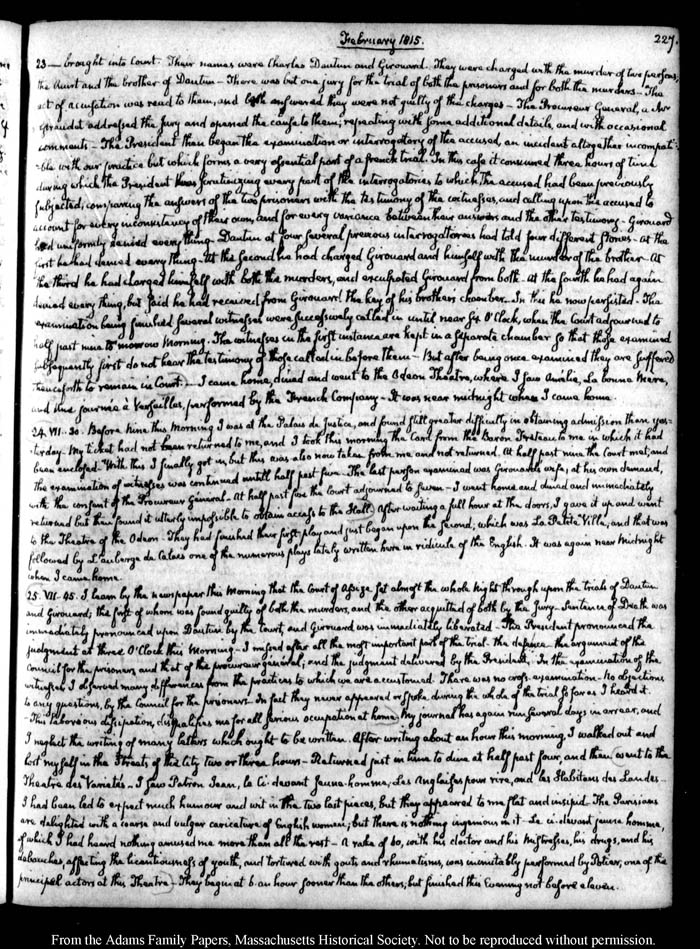 February 1815.
227.
23— brought into Court. Their names were Charles Dautun and Girouard. They were charged with the murder of two persons;
the Aunt and the brother of Dautun— There was but one jury for the trial of both the prisoners and for both the murders— The
act of accusation was read to them, and both answered they were not guilty of the charges— The Procureur General, a Mr
Giraudet addressed the jury and opened the cause to them; repeating with some additional details, and with occasional
comments— The President then began the examination or interrogatory of the accused, an incident altogether incompati-
-ble with our practice but which forms a very essential part of a french trial. In this case it consumed three hours of time
during which the President was scrutinizing every part of the interrogatories to which the accused had been previously
subjected, comparing the answers of the two prisoners with the testimony of the witnesses, and calling upon the accused to
account for every inconsistency of their own, and for every variance between their answers and the other testimony— Girouard
had uniformly denied every thing— Dautun at four several previous interrogatories had told four different stories— At the
first he had denied every thing— At the second he had charged Girouard and himself with the murder of the brother— At
the third he had charged himself with both the murders, and exculpated Girouard from both— At the fourth he had again
denied every thing, but said he had received from Girouard the key of his brother's chamber— In this he now persisted— The
examination being finished several witnesses were successively called in until near six O'Clock, when the Court adjourned to
half past nine to morrow Morning. The witnesses in the first instance are kept in a separate chamber so that those examined
subsequently first do not hear the testimony of those called in before them— But after being once examined they are suffered
thenceforth to remain in Court— I came home, dined and went to the Odeon Theatre, where I saw Amélie, La bonne Mere,
and une journée à Versailles, performed by the French Company— It was near midnight when I came home.
24. VII..30. Before nine this Morning I was at the Palais de Justice, and found still greater difficulty in obtaining admission than yes-
-terday. My ticket had not been returned to me, and I took this morning the Card from the Baron Freteau to me in which it had
been enclosed. With this I finally got in, but this was also now taken from me and not returned. At half past nine the Court met, and
the examination of witnesses was continued untill half past five— The last person examined was Girouard's wife; at his own demand,
with the consent of the Procureur General. At half past five the Court adjourned to seven— I went home and dined and immediately
returned but then found it utterly impossible to obtain access to the Hall. After waiting a full hour at the doors, I gave it up and went
to the Theatre of the Odeon— They had finished their first play and just begun upon the second; which was La Petite Ville, and that was
followed by L'auberge de Calais one of the numerous plays lately written here in ridicule of the English. It was again near Midnight
when I came home.
25. VII..45. I learn by the newspaper this Morning that the Court of Assize sat almost the whole Night through upon the trials of Dautun
and Girouard; the first of whom was found guilty of both the murders, and the other acquitted of both by the Jury— Sentence of Death was
immediately pronounced upon Dautun by the Court, and Girouard was immediately liberated— The President pronounced the
judgment at three O'Clock this Morning— I missed after all the most important part of the trial— the defence— the argument of the
Council for the prisoners, and that of the procureur general; and the judgment delivered by the President. In the examination of the
witnesses I observed many differences from the practices to which we are accustomed. There was no cross-examination— No objections
to any questions, by the Council for the prisoners— In fact they never appeared or spoke during the whole of the trial so far as I heard it.
—This laborious dissipation, disqualifies me for all serious occupation at home. My journal has again run several days in arrear, and
I neglect the writing of many letters which ought to be written. After writing about an hour this morning, I walked out and
lost myself in the Streets of this City two or three hours— Returned just in time to dine at half past four, and then went to the
Theatre des Varietés— I saw Patron Jean, le Ci-devant jeune-homme, Les Anglaises pour rire, and les Habitans des Landes—
I had been led to expect much humour and wit in the two last pieces, but they appeared to me flat and insipid. The Parisians
are delighted with a coarse and vulgar caricature of English women; but there is nothing ingenious in it— Le ci-devant jeune homme,
of which I had heard nothing amused me more than all the rest— A rake of 60, with his doctor and his Mistresses, his drugs, and his
debauches, affecting the licentiousness of youth, and tortured with gouts and rheumatisms, was inimitably performed by Potier, one of the
principal actors at this Theatre— They begin at 6— an hour sooner than the others; but finished this Evening not before eleven.
From the Adams Family Papers, Massachusetts Historical Society. Not to be reproduced without permission.